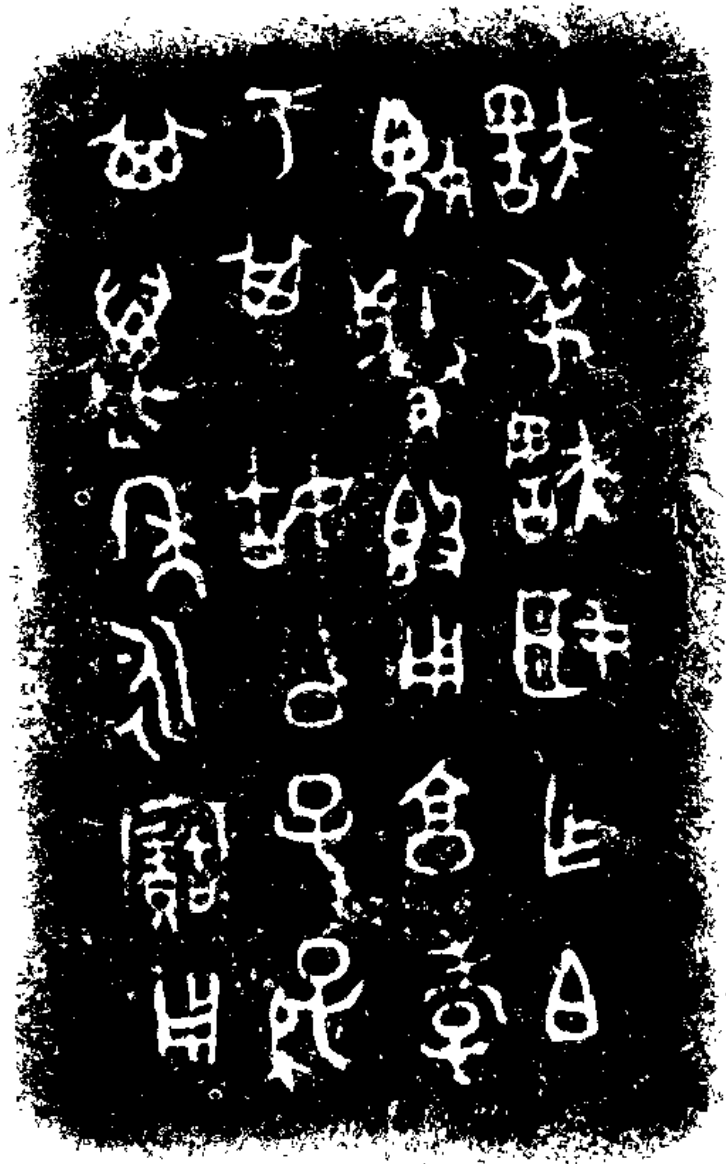 㝬弔㝬姬乍白
媿𠋢𣪘用亯孝
于其姑公子孫
其萬年永寶用